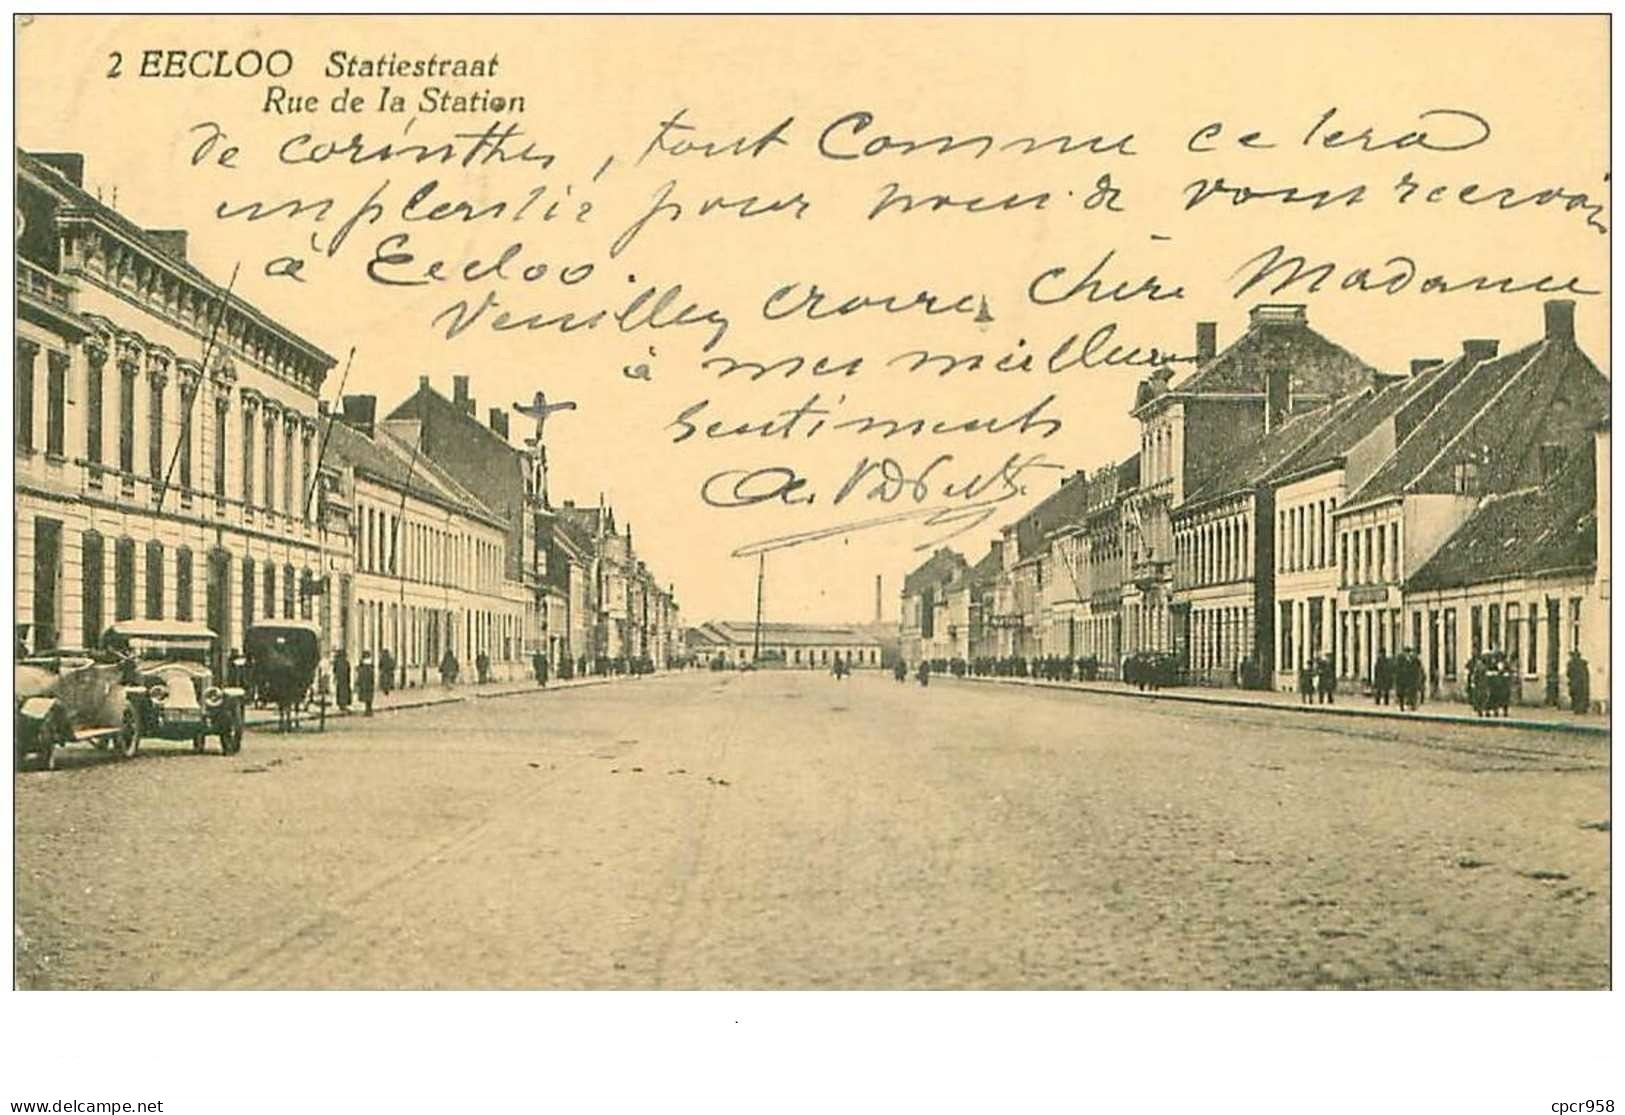 2 EECLOO Statiestraat
Rue de la Station
de corinthes, tout comme ce sera
un plaisir pour nous de vous recevoir
à Eecloo.
Veuillez croire, chère Madame
à mes meilleurs
sentiments
Delcampe.net
cpcr958